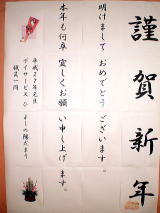 謹賀新年
明けまして おめでとう ございます。
本年も何卒 宜しくお願 い申し上げ ます。
平成27年元旦
デイサービス ひ よしの陽だまり
職員一同